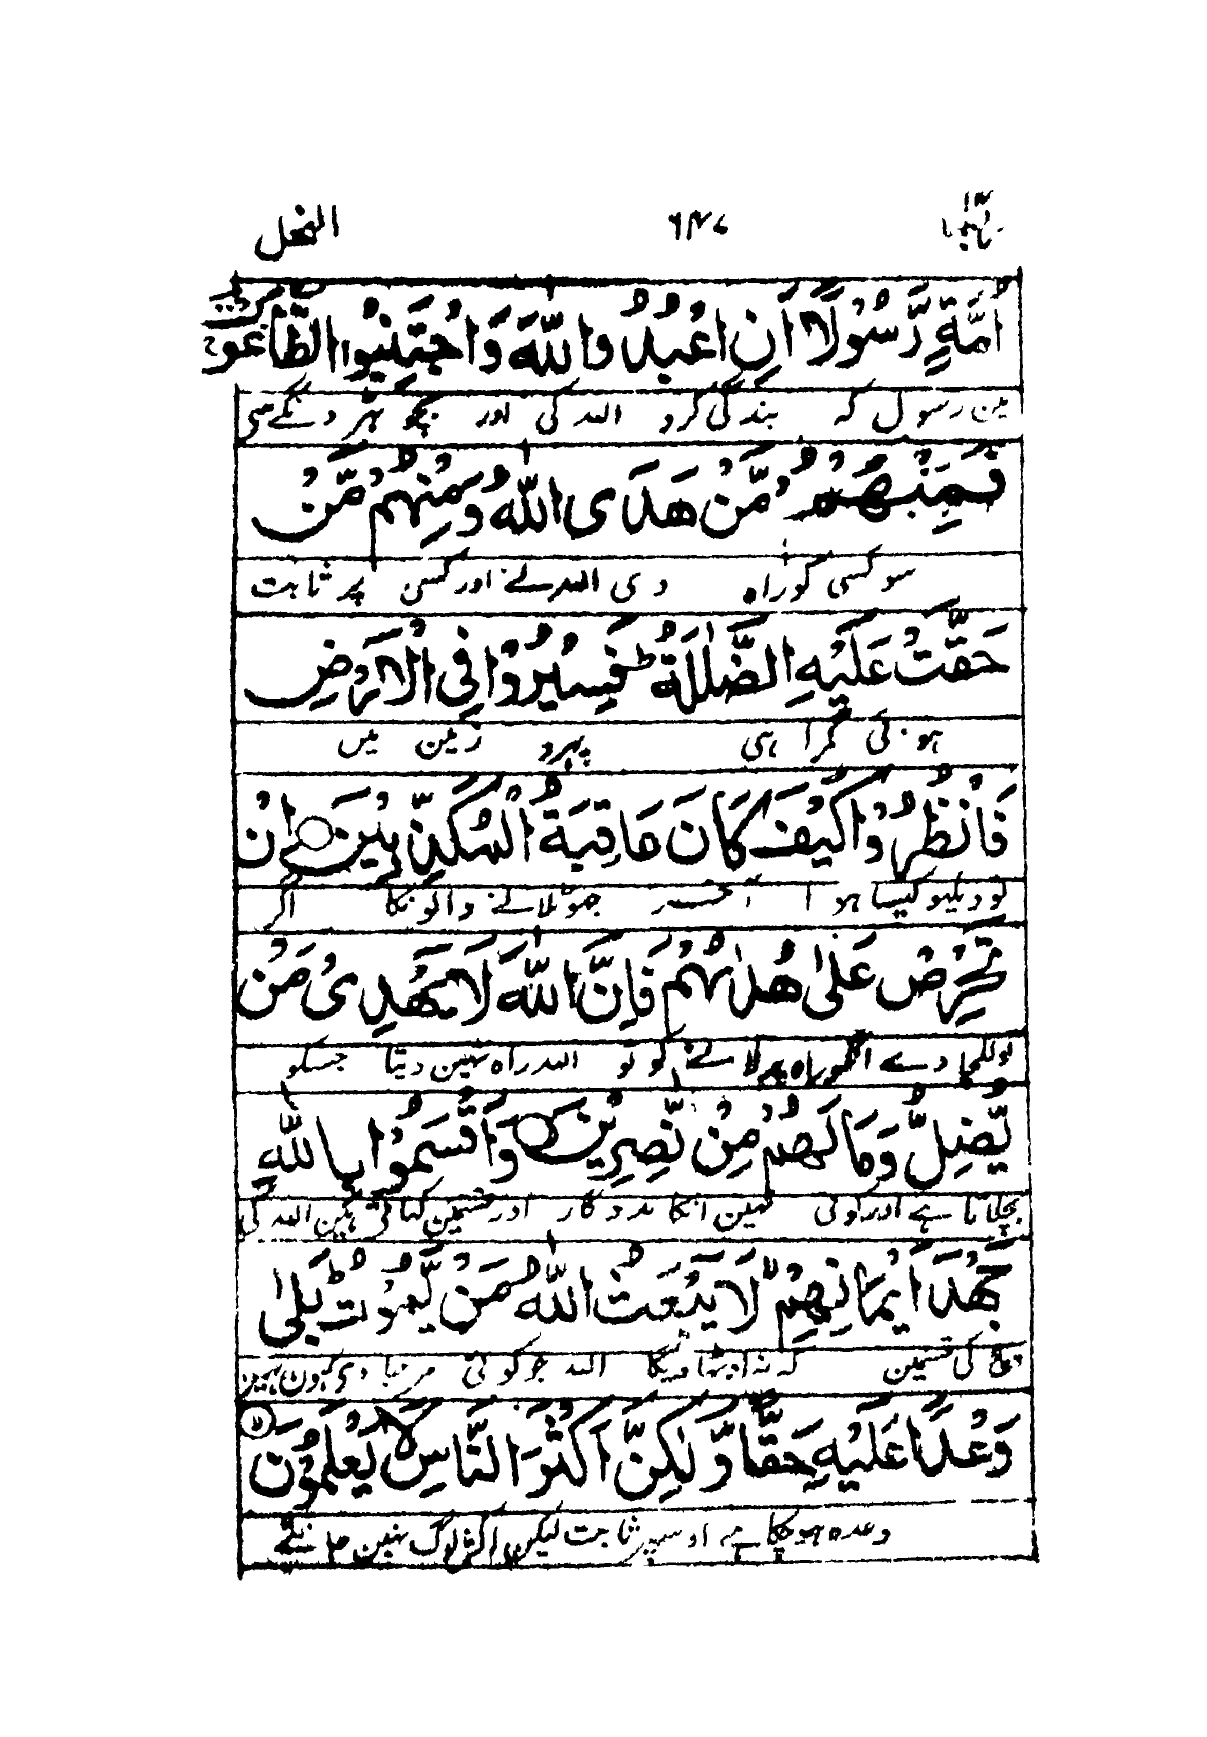 ربما ١٤
٦٤٧
النحل
اُمَّةٍ رَّسُوْلًا اَنِ اعْبُدُوا اللّٰهَ وَاجْتَنِبُوا الطَّاغُوْتَ
مین رسول که بندگی کرو الله کی اور بچو هڑدنگے سی
فَمِنْهُمْ مَّنْ هَدَى اللّٰهُ وَمِنْهُمْ مَّنْ
سو کسی کو راه دی الله نے اور کسی پر ثابت
حَقَّتْ عَلَيْهِ الضَّلٰلَةُ ؕ فَسِيْرُوْا فِي الْاَرْضِ
هوئی گمراهی پهرو زمین میں
فَانْظُرُوْا كَيْفَ كَانَ عَاقِبَةُ الْمُكَذِّبِيْنَ ۝ اِنْ
تو دیکهو کیسا هوا آخر جهوٹلانے والونکا اگر
تَحْرِصْ عَلٰى هُدٰىهُمْ فَاِنَّ اللّٰهَ لَا يَهْدِيْ مَنْ
تو للچاوے انکو راه پر لانے کو تو الله راه نهین دیتا جسکو
يُّضِلُّ وَمَا لَهُمْ مِّنْ نّٰصِرِيْنَ ۝ وَاَقْسَمُوْا بِاللّٰهِ
بچلاتا هے اور کوئی نهین انکا مددگار اور قسمین کهاتے هین الله کی
جَهْدَ اَيْمَانِهِمْ ۙ لَا يَبْعَثُ اللّٰهُ مَنْ يَّمُوْتُ ؕ بَلٰى
کی قسمین که نه اوٹهاویگا الله جو کوئی مرجاوے کیون نهین
وَعْدًا عَلَيْهِ حَقًّا وَّلٰكِنَّ اَكْثَرَ النَّاسِ لَا يَعْلَمُوْنَ
وعده هوچکا هے اوسپر ثابت لیکن اکثر لوگ نهین جانتے